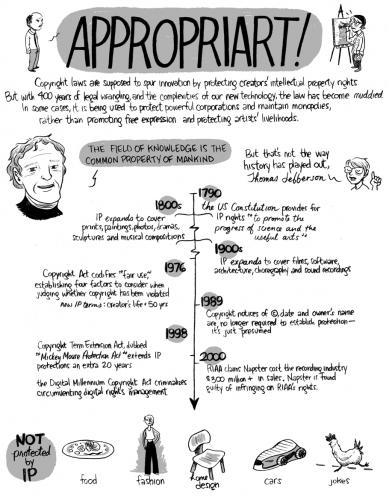 APPROPRIART!
Copyright laws are supposed to spur innovation by protecting creators' intellectual property rights.
But with 400 years of legal wrangling and the complexities of our new technology, the law has become muddied.
In some cases, it is being used to protect powerful corporations and maintain monopolies,
rather than promoting free expression and protecting artists' livelihoods.
THE FIELD OF KNOWLEDGE IS THE
COMMON PROPERTY OF MANKIND
But that's not the way
history has played out,
Thomas Jefferson
1790
the US Constitution provides for
IP rights "to promote the
progress of science and the
useful arts"
1800s
IP expands to cover
prints, paintings, photos, dramas,
sculptures and musical compositions
1900s
IP expands to cover films, software,
architecture, choreography and sound recordings
1976
Copyright Act codifies "fair use,"
establishing four factors to consider when
judging whether copyright has been violated
new IP terms: creator's life + 50 yrs
1989
Copyright notices of ©, date and owner's name
are no longer required to establish protection—
it's just presumed
1998
Copyright Term Extension Act, dubbed
"Mickey Mouse Protection Act" extends IP
protections an extra 20 years
the Digital Millennium Copyright Act criminalizes
circumventing digital rights management
2000
RIAA claims Napster cost the recording industry
$300 million + in sales. Napster is found
guilty of infringing on RIAA's rights.
NOT
protected
by
IP
food
fashion
home
design
cars
jokes